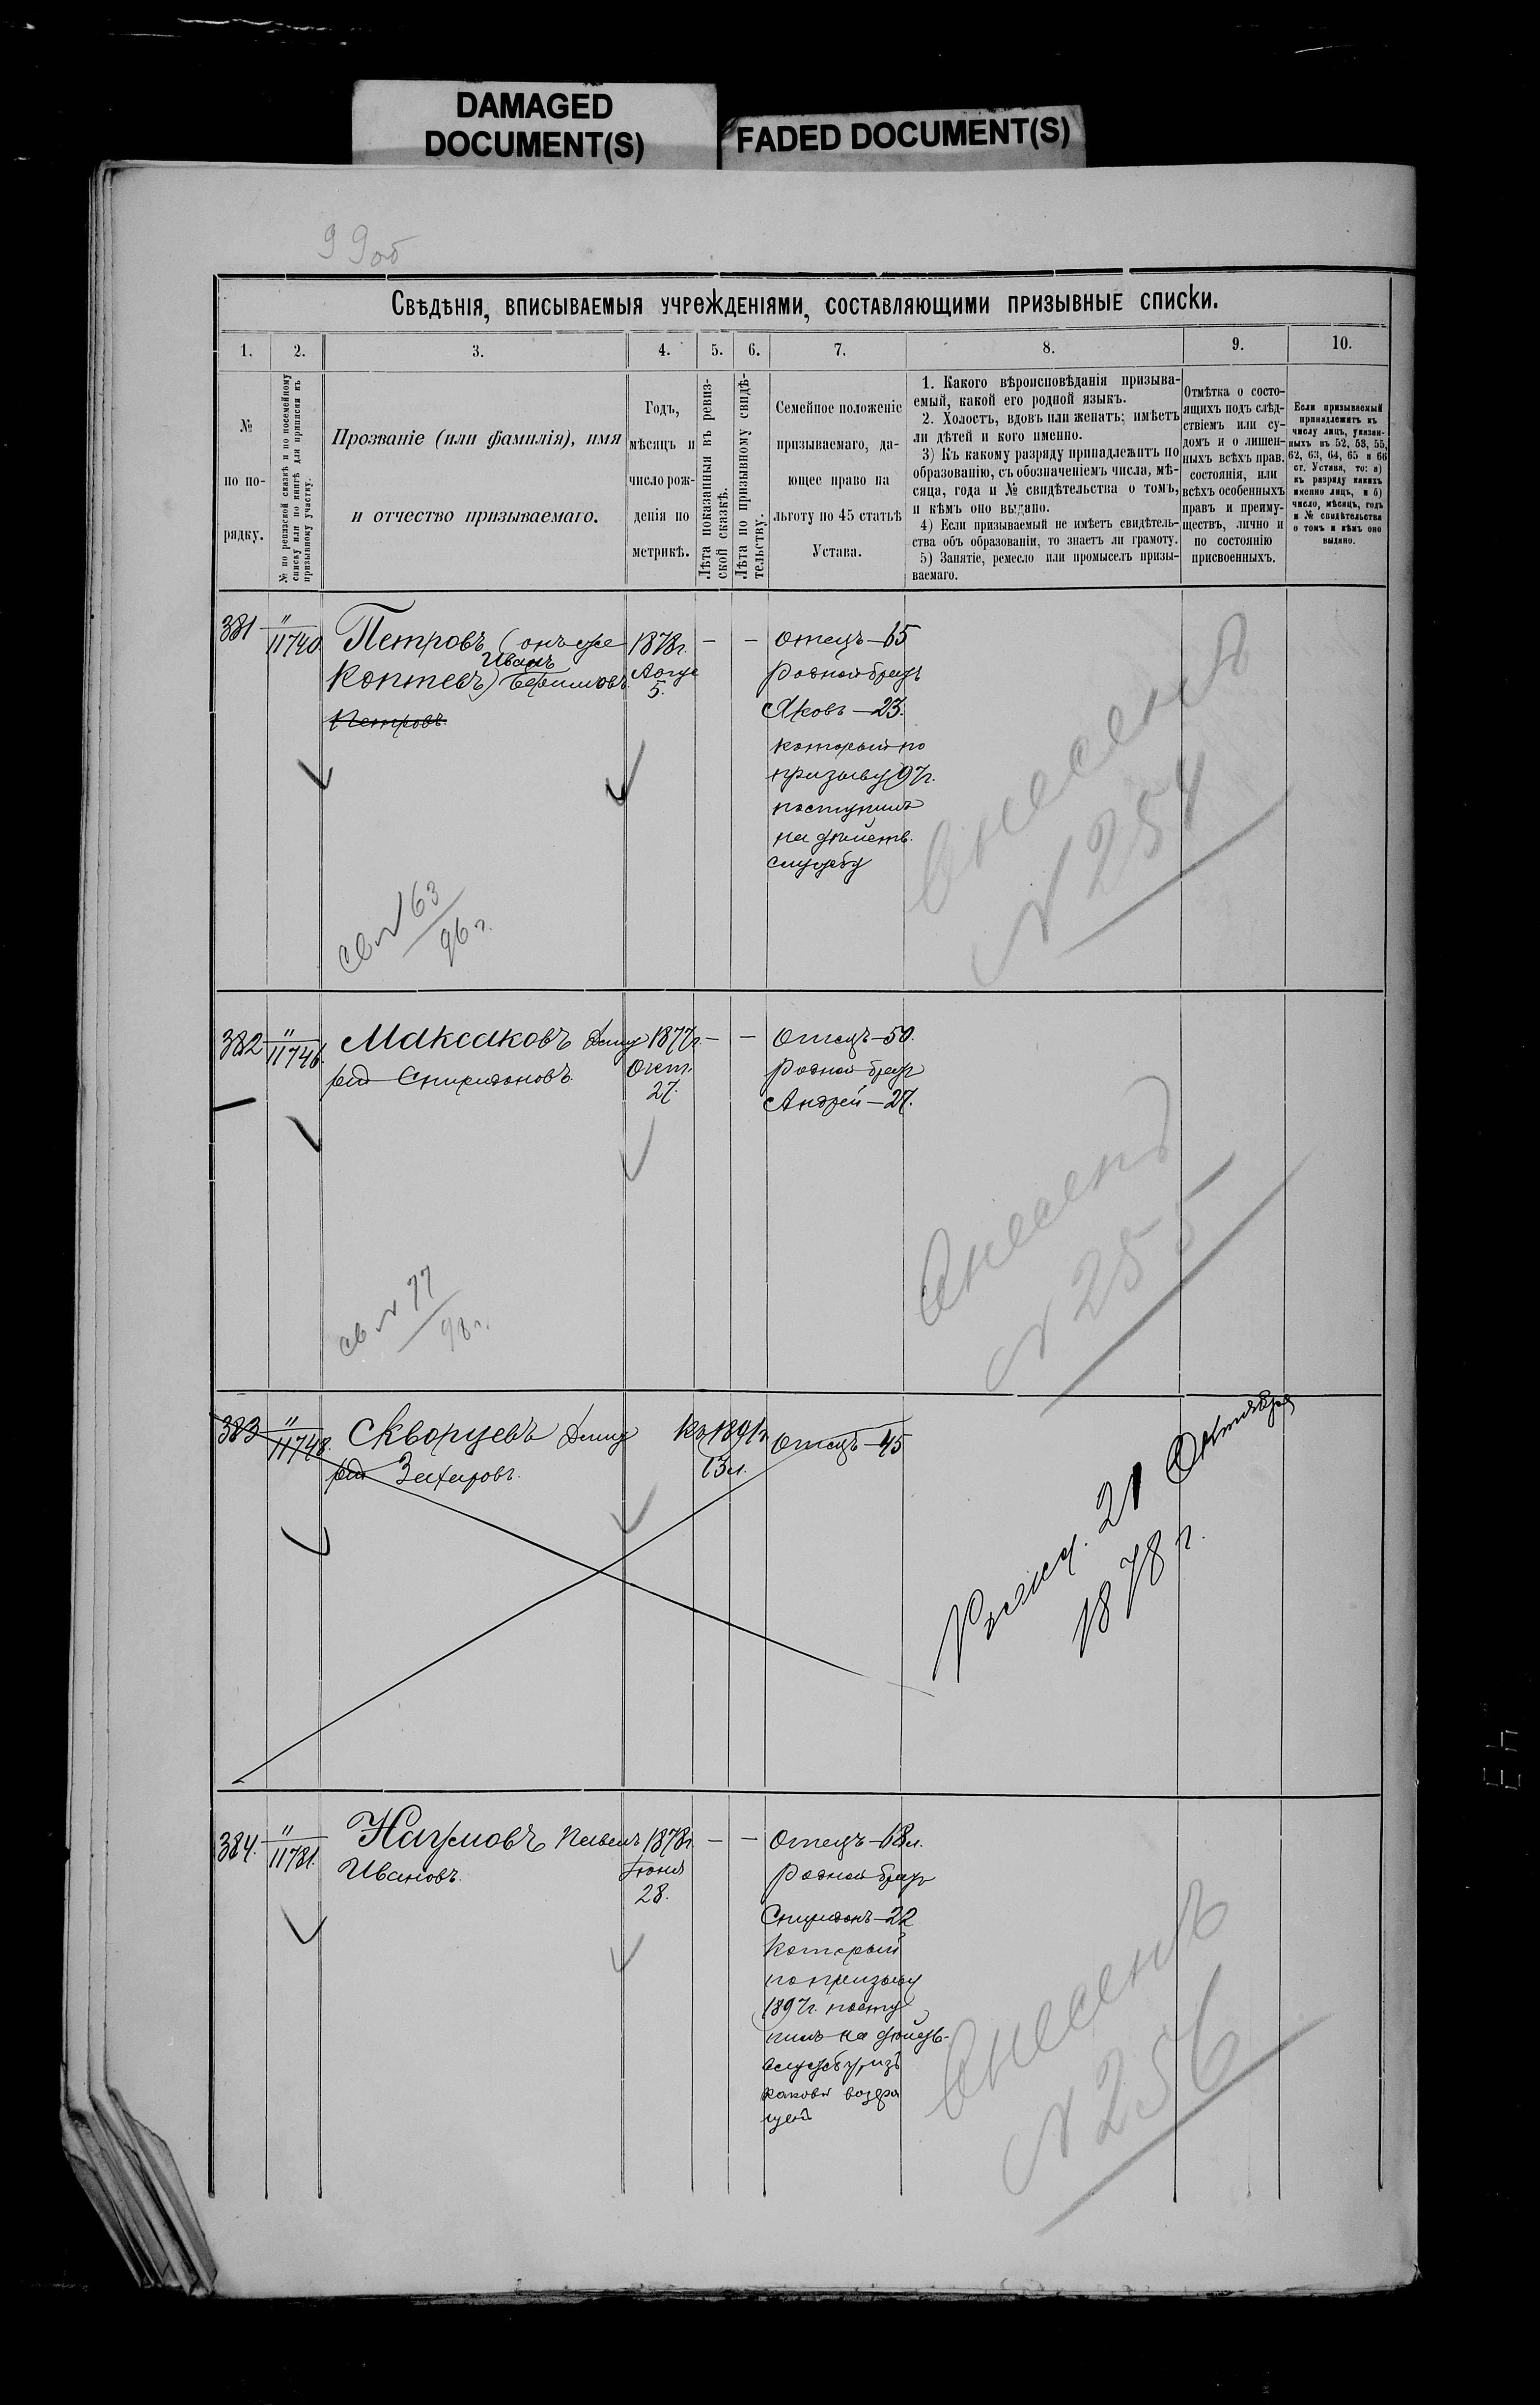 DAMAGED
DOCUMENT(S)
FADED DOCUMENT(S)
99об
Свѣдѣнія, вписываемыя учрежденіями, составляющими призывные списки.
1.
2.
3.
4.
5.
6.
7.
8.
9.
10.
№
по по-
рядку.
№ по ревизской сказкѣ и по посемейному
списку или по книгѣ для приписки къ
призывному участку.
Прозваніе (или фамилія), имя
и отчество призываемаго.
Годъ,
мѣсяцъ и
число рож-
денія по
метрикѣ.
Лѣта показанныя въ ревиз-
ской сказкѣ.
Лѣта по призывному свидѣ-
тельству.
Семейное положеніе
призываемаго, да-
ющее право на
льготу по 45 статьѣ
Устава.
1. Какого вѣроисповѣданія призыва-
емый, какой его родной языкъ.
2. Холостъ, вдовъ или женатъ; имѣетъ
ли дѣтей и кого именно.
3) Къ какому разряду принадлежитъ по
образованію, съ обозначеніемъ числа, мѣ-
сяца, года и № свидѣтельства о томъ,
и кѣмъ оно выдано.
4) Если призываемый не имѣетъ свидѣтель-
ства объ образованіи, то знаетъ ли грамоту.
5) Занятіе, ремесло или промыселъ призы-
ваемаго.
Отмѣтка о состо-
ящихъ подъ слѣд-
ствіемъ или су-
домъ и о лишен-
ныхъ всѣхъ прав.
состоянія, или
всѣхъ особенныхъ
правъ и преиму-
ществъ, лично и
по состоянію
присвоенныхъ.
Если призываемый
принадлежитъ къ
числу лицъ, указан-
ныхъ въ 52, 53, 55,
62, 63, 64, 65 и 66
ст. Устава, то: а)
къ разряду какихъ
именно лицъ, и б)
число, мѣсяцъ, годъ
и № свидѣтельства
о томъ и кѣмъ оно
выдано.
381
"
11740
Петровъ (онъ же
Иванъ
Коптевъ) Ефимовъ
Петровъ
1878г.
Авгус
5.
–
–
отецъ – 65
Родной братъ
Яковъ – 23.
который по
призыву 97г.
поступилъ
на дѣйств.
службу
Внесенъ
№ 254
св № 63
96 г.
382
"
11746.
Максаковъ Дмит
рій Спиридоновъ
1877г.
Окт.
27.
–
–
Отецъ – 50.
Родной братъ
Андрей – 27.
Внесенъ
№ 255
св № 77
98 г.
383
"
11748.
Скворцевъ Дмит
рій Захаровъ.
Къ 1891г.
13 л.
Отецъ – 45
21 Октября
1878 г.
384.
"
11781.
Наумовъ Павелъ
Ивановъ.
1878г.
Іюня
28.
–
–
Отецъ – 68л.
Родной братъ
Спиридонъ – 22
который
по призыву
1897г. посту
пилъ на дѣйств.
службу, изъ
каковой возвра
щенъ
Внесенъ
№ 256